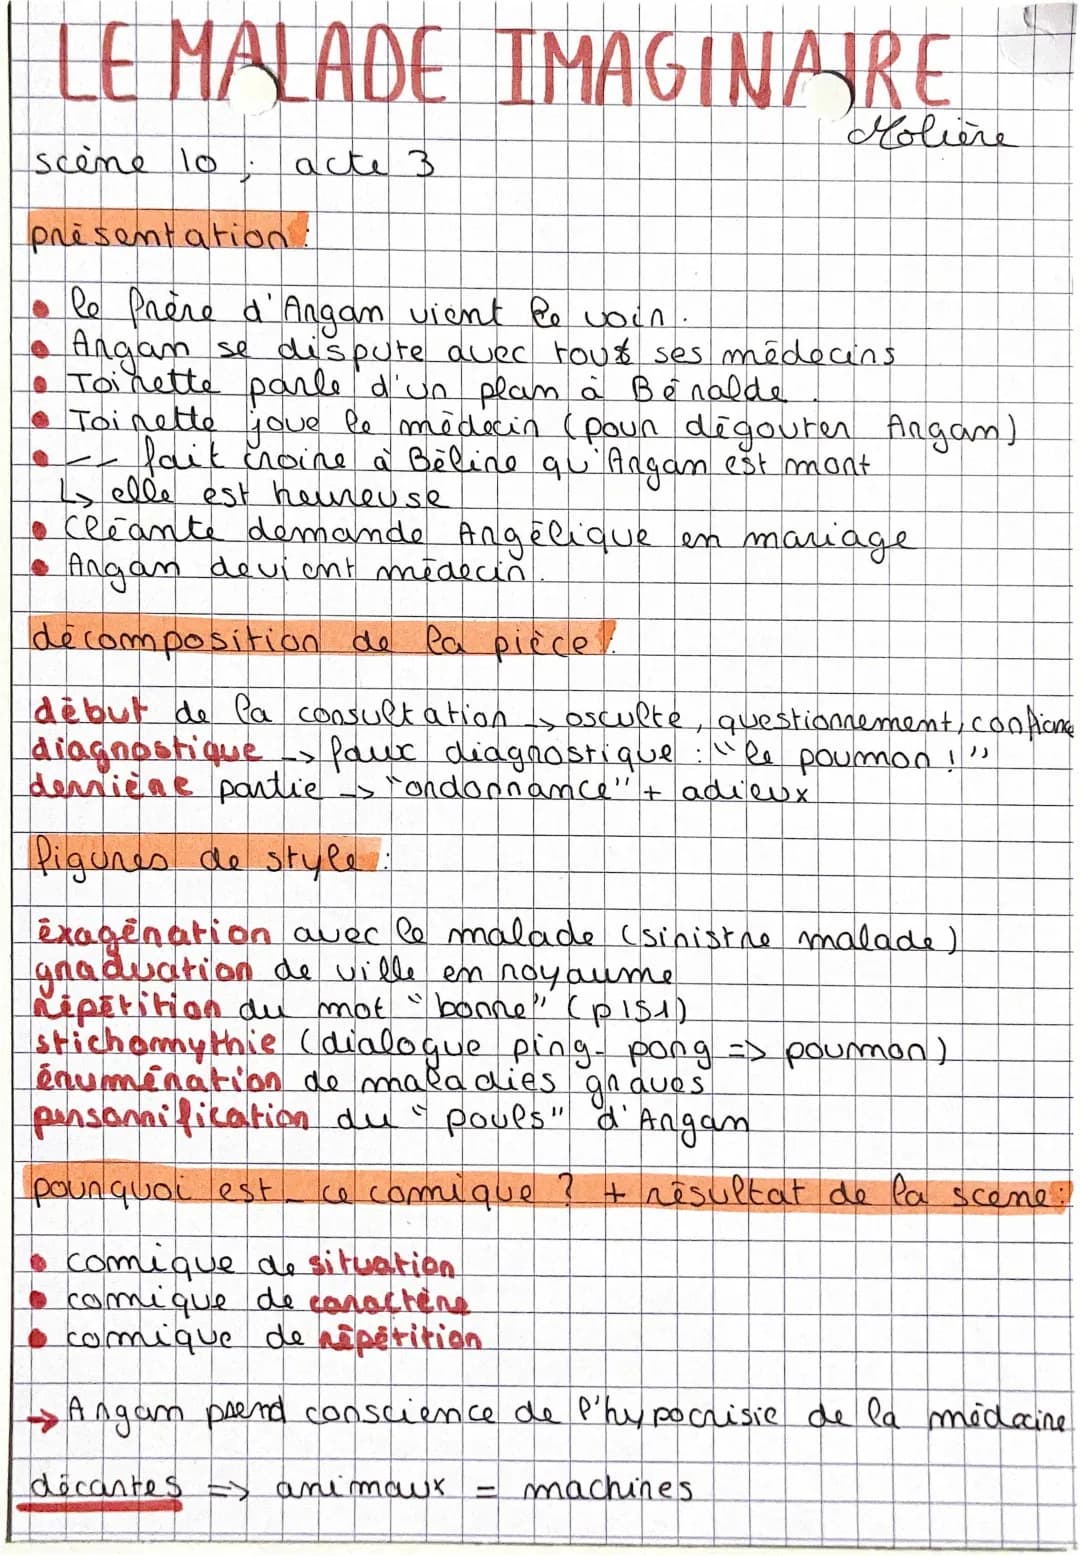 LE MALADE IMAGINAIRE
Molière
scène 10 ; acte 3
présentation :
• le frère d'Argan vient le voir.
• Argan se dispute avec tous ses médecins
• Toinette parle d'un plan à Béralde.
• Toinette joue le médecin (pour dégouter Argan)
• -- fait croire à Béline qu'Argan est mort
↳ elle est heureuse
• Cléante demande Angélique en mariage
• Argan devient médecin.
décomposition de la pièce :
début de la consultation → osculte, questionnement, confiance
diagnostique → faux diagnostique : "le poumon !"
dernière partie → "ordonnance" + adieux
figures de style :
éxagération avec le malade (sinistre malade)
graduation de ville en royaume
répétition du mot "bonne" (p151)
stichomythie (dialogue ping-pong => poumon)
énumération de maladies graves
personnification du "pouls" d'Argan
pourquoi est-ce comique ? + résultat de la scene :
• comique de situation
• comique de caractère
• comique de répétition
→ Argan prend conscience de l'hypocrisie de la médecine
décartes => animaux = machines